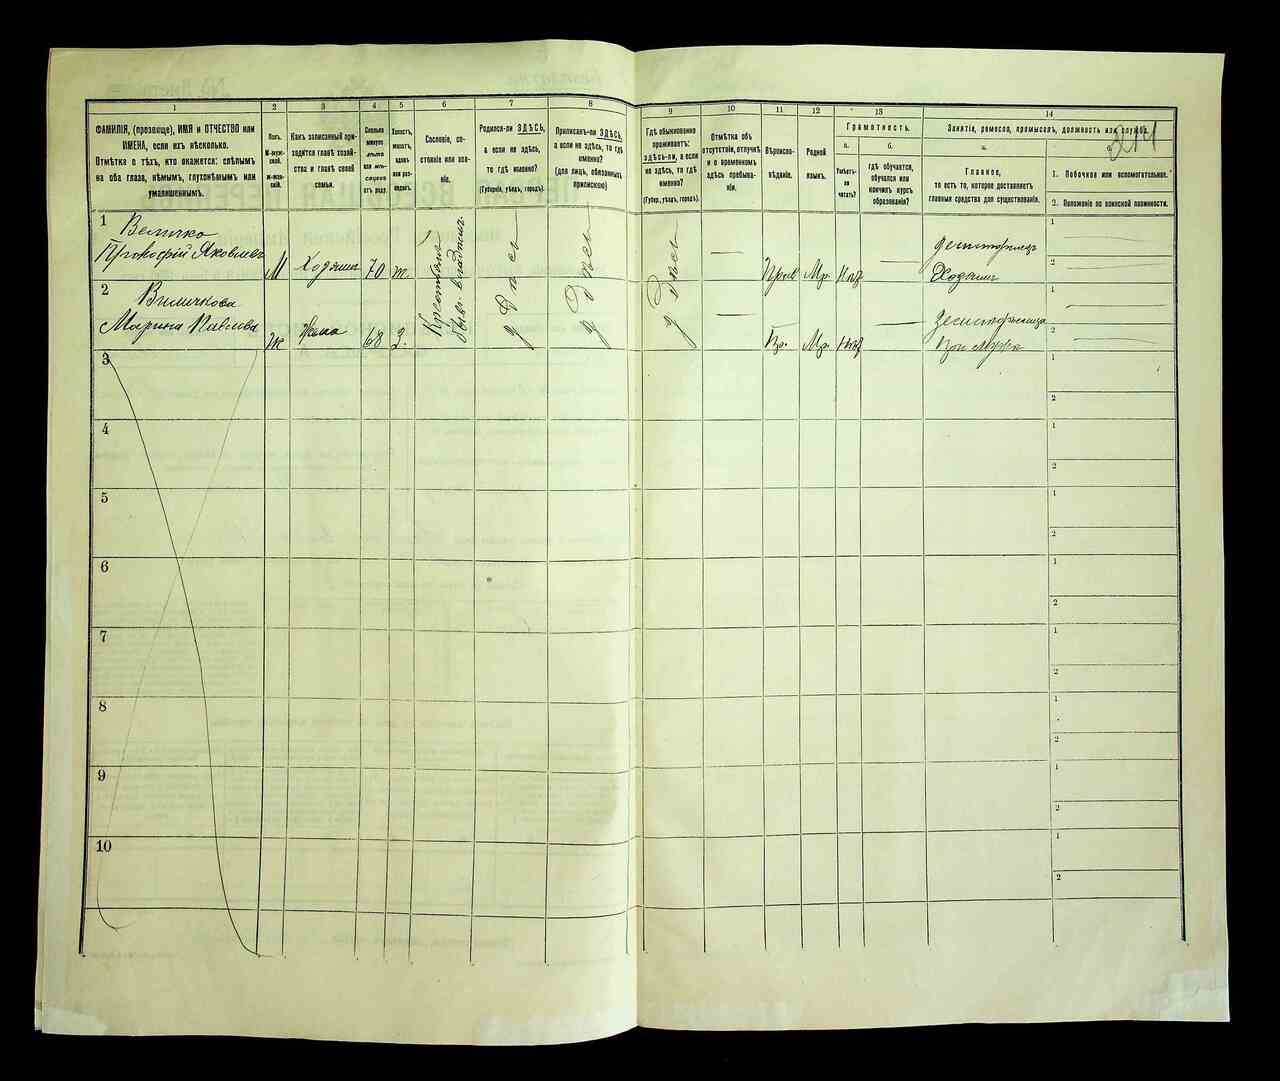 1 2 3 4 5 6 7 8 9 10 11 12 13 14
ФАМИЛІЯ, (прозвище), ИМЯ и ОТЧЕСТВО или
ИМЕНА, если ихъ нѣсколько.
Отмѣтка о тѣхъ, кто окажется: слѣпымъ
на оба глаза, нѣмымъ, глухонѣмымъ или
умалишеннымъ.
Полъ.
М-муж-
ской.
ж-жен-
скій.
Какъ записанный при-
ходится главѣ хозяй-
ства и главѣ своей
семьи.
Сколько
минуло
лѣтъ
или мѣ-
сяцевъ
отъ роду.
Холостъ,
женатъ,
вдовъ
или раз-
веденъ.
Сословіе, со-
стояніе или зва-
ніе.
Родился-ли ЗДѢСЬ,
а если не здѣсь,
то гдѣ именно?
(Губернія, уѣздъ, городъ).
Приписанъ-ли ЗДѢСЬ,
а если не здѣсь, то гдѣ
именно?
(для лицъ, обязанныхъ
припискою)
Гдѣ обыкновенно
проживаетъ:
здѣсь-ли, а если
не здѣсь, то гдѣ
именно?
(Губер., уѣздъ, городъ).
Отмѣтка объ
отсутствіи, отлучкѣ
и о временномъ
здѣсь пребыва-
ніи.
Вѣроиспо-
вѣданіе.
Родной
языкъ.
Грамотность.
а.
Умѣетъ-
ли
читать?
б.
гдѣ обучается,
обучался или
кончилъ курсъ
образованія?
Занятіе, ремесло, промыселъ, должность или служба.
а.
Главное,
то есть то, которое доставляетъ
главныя средства для существованія.
1. Побочное или вспомогательное.
2. Положеніе по воинской повинности.
1 Величко
Прокофій Яковлевъ М Хозяинъ 70 ж.
Крестьян.
бывш. владѣльч.
Здѣсь Здѣсь Здѣсь
Прав Мр. Нѣт
Хозяинъ
2
Марина Павлова ж Жена 68 З. Пр. Мр. Нѣт
при мужѣ
3
4
5
6
7
8
9
10
1
2
1
2
1
2
1
2
1
2
1
2
1
2
1
2
1
2
1
2